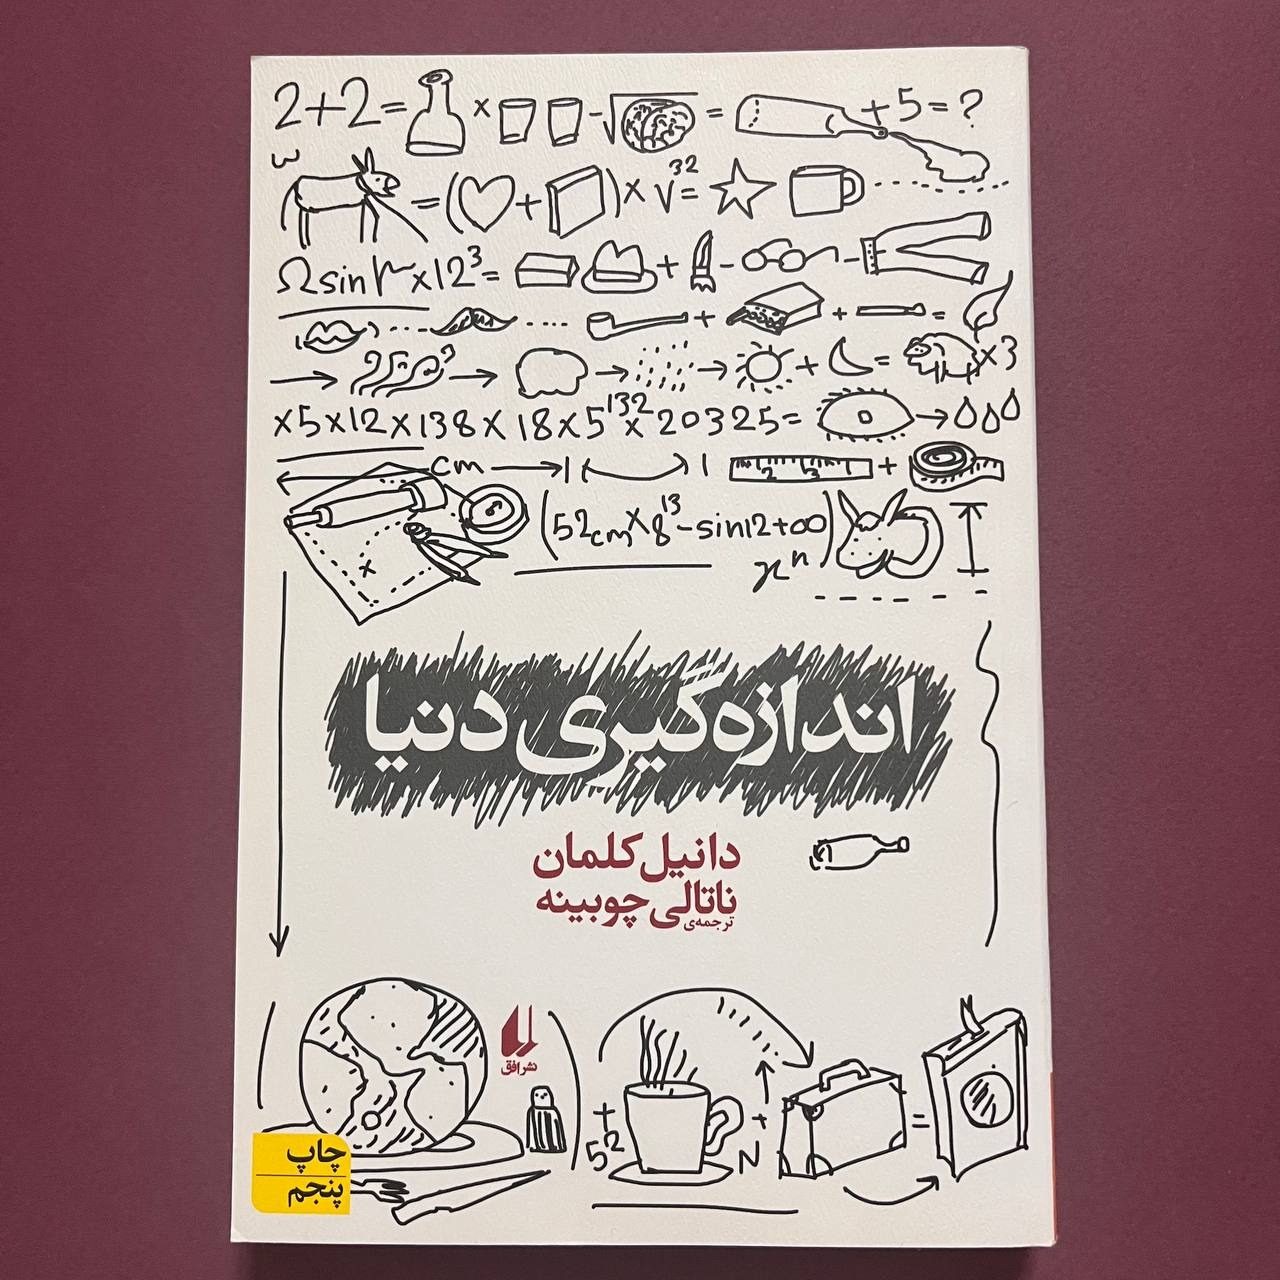 2+2= × - √ = +5=?
ω
=( + )× √32=
Ωsin ×12³= + - -
+ + =
→ → → → + = ×3
×5×12×138×18×5¹³²×20325= →
cm → 1 1 2 3 +
(52cm×8¹³-sin12+∞)
xⁿ
x
اندازه‌گیری دنیا
دانیل کلمان
ناتالی چوبینه
ترجمه‌ی
نشر افق
+ 5² + N =
چاپ
پنجم